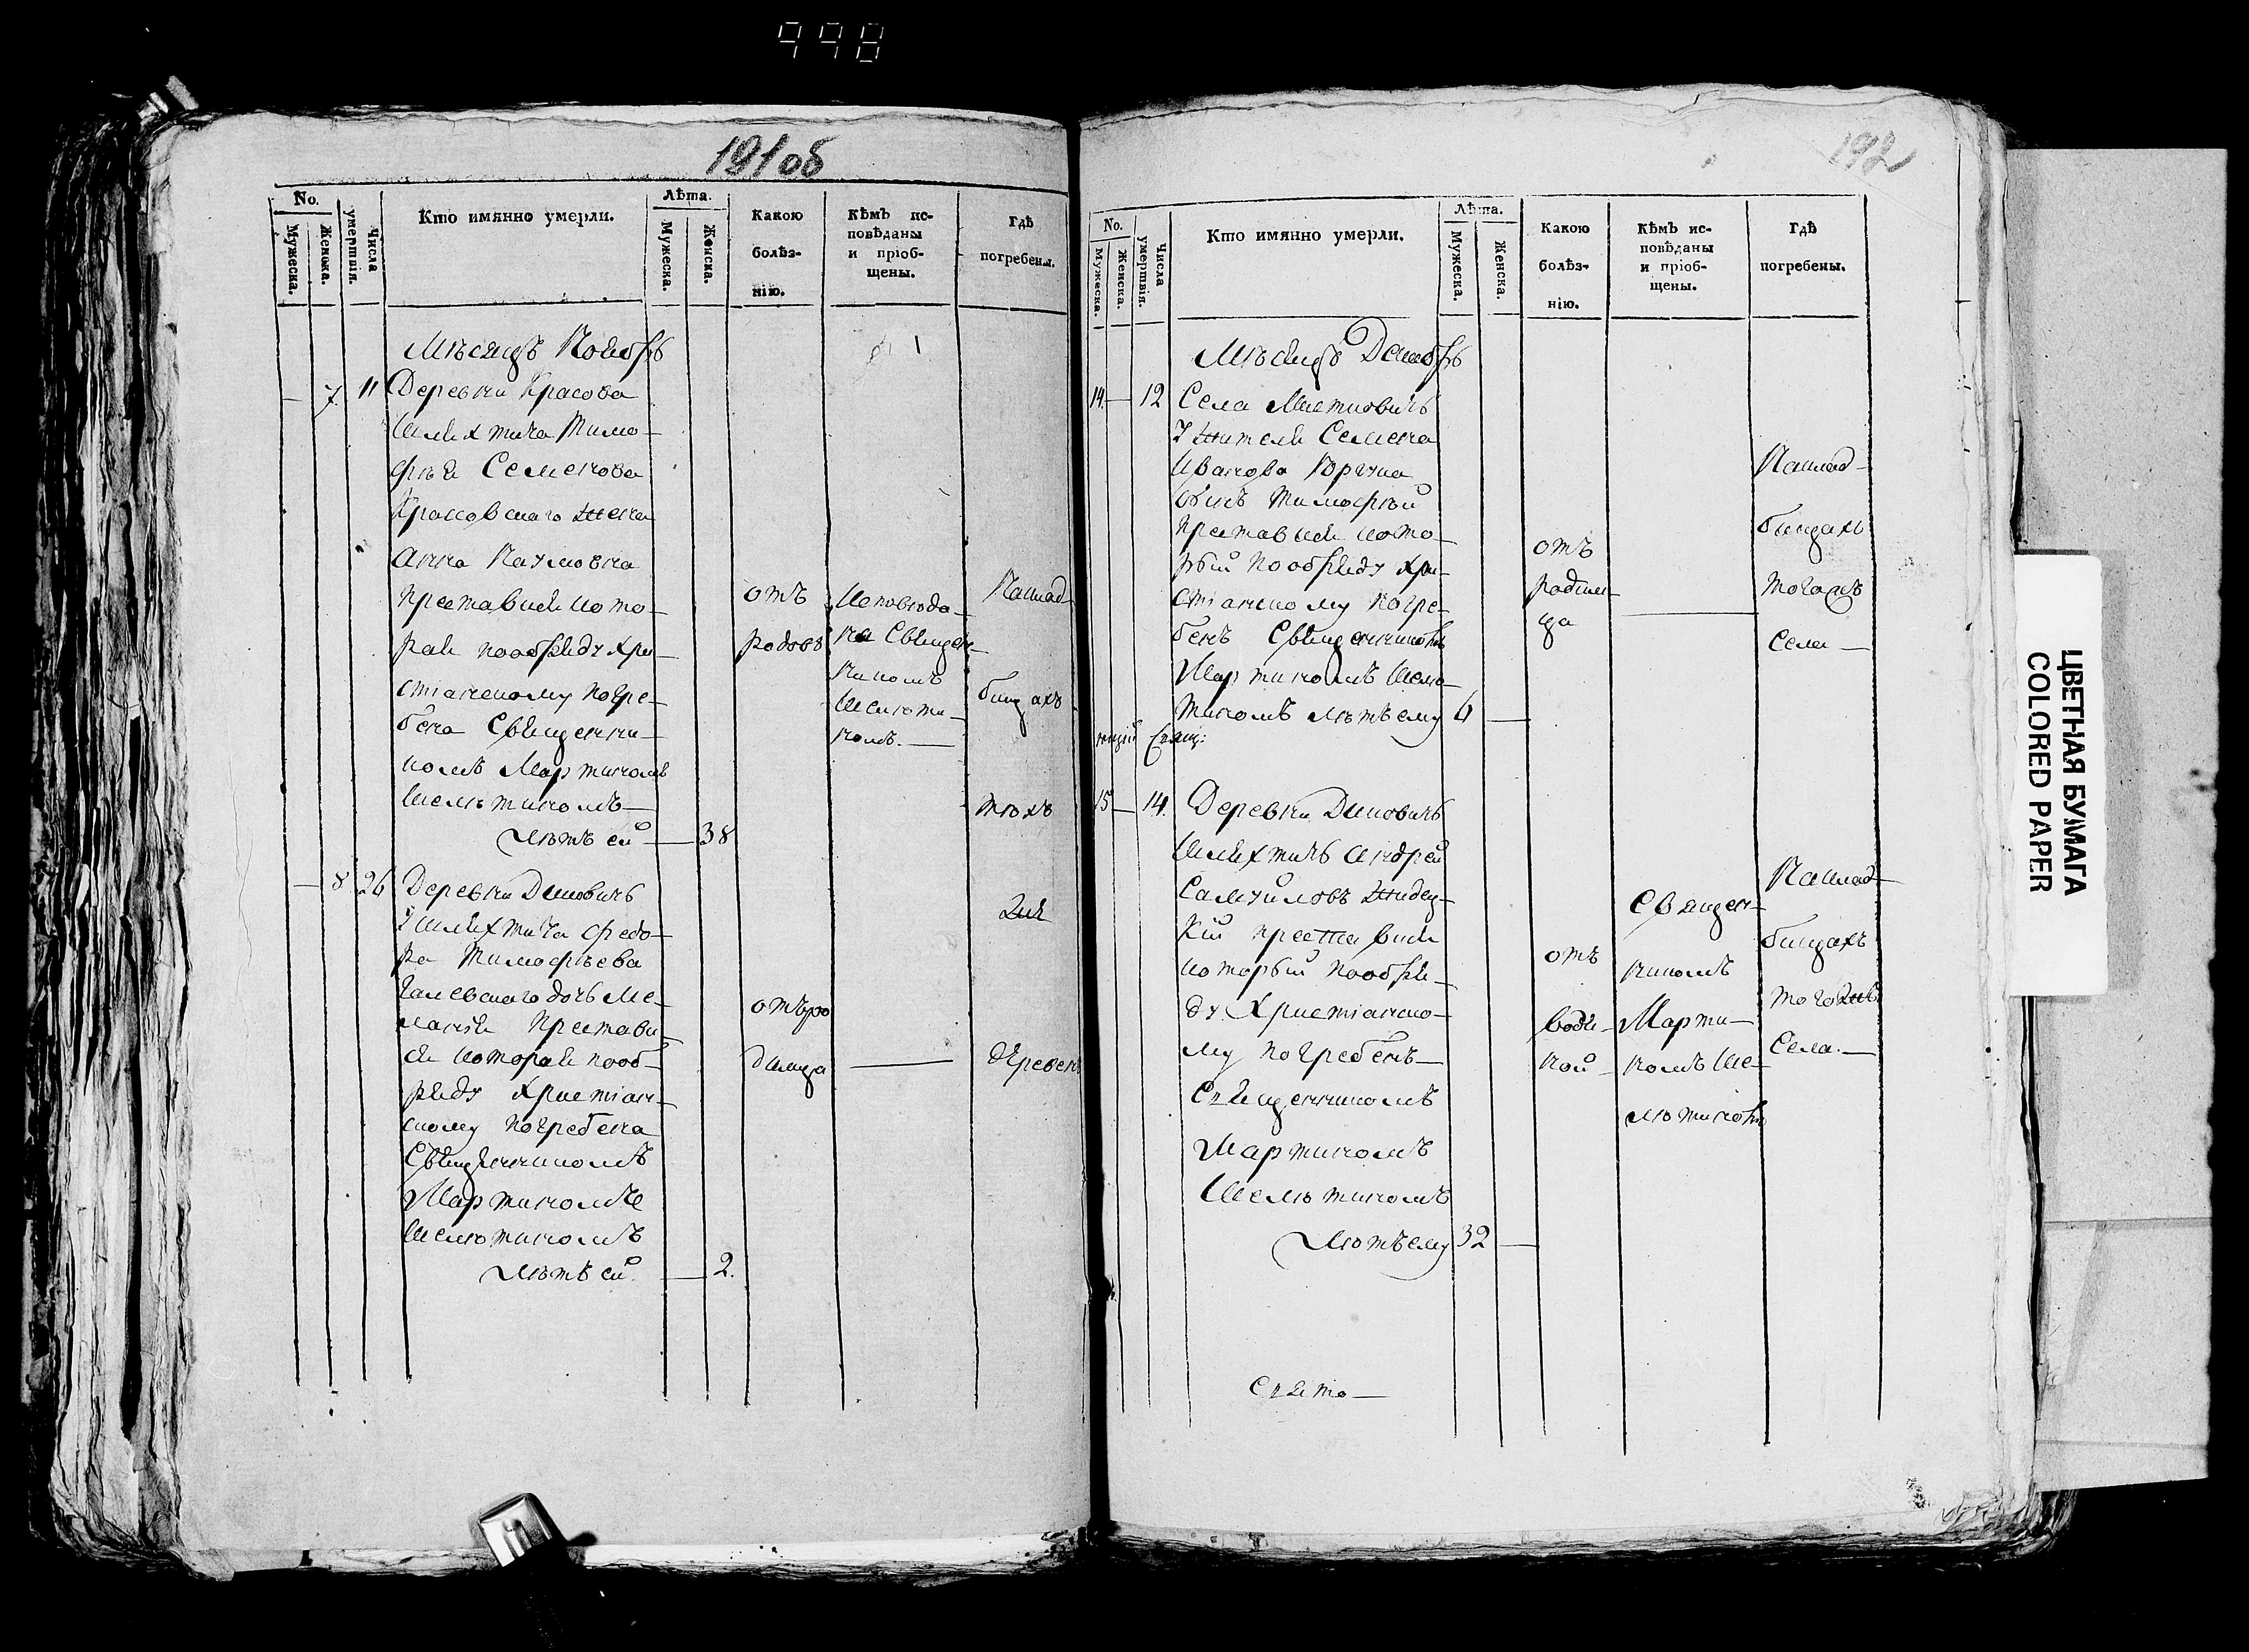 998
191об
No.
Мужеска.
Женска.
Числа умертвія.
Кто имянно умерли.
Лѣта.
Мужеска.
Женска.
Какою болѣз-нію.
Кѣмъ ис-
повѣданы
и пріоб-
щены.
Гдѣ
погребены.
Мѣсяцъ Ноябрь
— 7. 11 Деревни Красова
Шляхтича Тимо-
фѣя Семенова
Красовскаго жена
Анна
преставися кото-
рая пообряду Хри-
стіанскому погре-
бена Священни-
комъ Мартиномъ
Шелютиномъ —
Лѣтъ ей — 38
отъ
родовъ
Исповѣда-
на Священ-
никомъ
Шелюти-
номъ. —
Наклад-
бищахъ
тѣхъ
же
— 8 26 Деревни Диковичъ
У Шляхтича Федо-
ра Тимофѣева
дочь Ме-
ланія Престави-
ся которая пооб-
ряду Христіан-
скому погребена
Священникомъ
Мартиномъ
Шелютиномъ
Лѣтъ ей. — 2.
отъ ро
димца
—
деревень
192
No.
Мужеска.
Женска.
Числа умертвія.
Кто имянно умерли.
Лѣта.
Мужеска.
Женска.
Какою
болѣз-
нію.
Кѣмъ ис-
повѣданы
и пріоб-
щены.
Гдѣ
погребены.
Мѣсяцъ Декабрь
14. — 12 Села Мистковичъ
У жителя Семена
Иванова
сынъ Тимофѣй
преставися кото-
рый пообряду Хри-
стіанскому погре-
бенъ Священникомъ
Мартиномъ Шелю-
тиномъ лѣтъ ему 6 —
отъ
родим-
ца
—
Наклад-
бищахъ
тогожъ
Села —
Свящ:
15 — 14. Деревни Диковичъ
Шляхтичъ Андрей
Самуиловъ
кій преставися
который пообря-
ду Христіанско-
му погребенъ —
Священникомъ
Мартиномъ
Шелютиномъ
Лѣтъ ему 32 —
отъ
водя-
ной
Священ-
никомъ
Марти-
номъ Ше-
лютиномъ
Наклад-
бищахъ
того же
Села. —
ЦВЕТНАЯ БУМАГА
COLORED PAPER